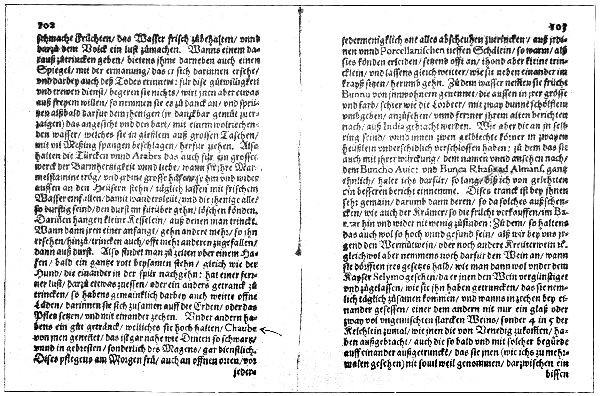 102
schmache Früchten/ das Wasser frisch zůbehalten/ vnnd
darzů dem Volck ein lust zůmachen. Wanns einem da-
rauß zůtrincken geben/ bietens ihme darneben auch einen
Spiegel/ mit der ermanung/ das er sich darinnen ersehe/
vnd darbey auch deß Todes erinner: für dise gůtwilligkeit
vnd trewen dienst/ begeren sie nichts/ wirt jnen aber etwas
auß freyem willen/ so nemmen sie es zů danck an/ vnd sprü-
tzen alßbald darfür dem jhenigen (jr danckbar gemüt zůer-
zaigen) das angesicht vnd den bart/ mit einem wolriechen-
den wasser/ welches sie in gießlen auß grossen Taschen/
mit vil Messing spangen beschlagen/ herfür ziehen. Also
halten die Türcken vnnd Arabes das auch für ein grosses
werck der Barmhertzigkeit vnnd liebe/ wann sie ihre Mar-
melsteinine trög/ vnd jedens groß häfen/ so hin vnd wider
aussen an den Heüsern stehn/ täglich lassen mit frischem
Wasser einfallen/ damit wandrsleüt/ vnd die jhenige alle/
so durstig seind/ den durst im fürüber gehn/ löschen könden.
Darinnen hangen kleine Kesselein/ auß denen man trinckt.
Wann dann jren einer anfangt/ gehn andere mehr/ so ihn
ersehen/ hinzů/ trincken auch/ offt mehr anderen zůgefallen/
dann auß durst. Also findet man zů zeiten vber einem Ha-
fen/ bald ein gantze rott beysamen stehn/
Hund/ die einander in der spür nachgehn: hat einer fer-
ner lust/ darzů etwas zuessen/ oder ein anders getranck zů
trincken/ so habens gemeinklich darbey auch weitte offne
Läden/ darinnen sie sich zůsamen auff der Erden/ oder das
Pflez setzen/ vnd mit einander zechen. Vnder andern ha-
bens ein gůt getränck/ welliches sie hoch halten/ Chaube
von jnen genennet/ das ist gar nahe wie Dinten so schwartz/
vnnd in gebresten/ sonderlich des Magens/ gar dienstlich.
Dises pflegens am Morgen frů/ auch an offnen orten/ vor
jeder-
103
jedermenigklich one alles abscheuhen zůtrincken/ auß jrdi-
nen vnnd Porcellanischen tieffen Schälein/ so warm/ alß
sies könden erleiden/ setzend offt an/ thond aber kleine trinck-
lein/ vnd lassens gleich weitter/ wie sie neben einander im
krayß sitzen/ herumb gehn. Zů dem wasser nemmen sie frücht
Bunnu von jnwohnern genennet/ die aussen in jrer grösse
vnd farb/ schier wie die Lorbeer/ mit zway dünnen schölflein
vmbgeben/ anzůsehen/ vnnd ferner jhrem alten berichten
nach/ auß India gebracht werden. Wie aber die an jn selb
ring seind/ vnnd innen zwen gelblechte körner in zwayen
heüßlein vnderschidlich verschlossen haben: zů dem das sie
auch mit jhrer würckung/ dem namen vnnd ansehen nach/
dem Buncho Auic: vnd Bunca Rhasis ad Almans. gantz
ehnlich/ halt ichs darfür/ so lang/ biß ich von gelehrten
ein besseren bericht einnemme. Dises tranck ist bey jhnen
sehr gemain/ darumb dann deren/ so da solches außschen-
cken/ wie auch der Krämer/ so die frücht verkauffen/ im Ba-
tzar hin vnd wider nit wenig zůfinden: Zů dem/ so haltens
das auch wol so hoch vnnd gesund sein/ alß wir bey vns jr-
gend den Wermůtwein/ oder noch andere Kreüterwein rc.
gleich wol aber nemmens noch darfür den Wein an/ wann
sie dörfften jres gesetzs halb/ wie man dann wol vnder dem
Kayser Selymo gesehen/ da er jnen den Wein vergünstiget
vnd zůgelassen/ wie sie jhn haben getruncken/ das sie nem-
lich täglich zůsamen kommen/ vnd wanns in zechen bey ei-
nander gesessen/ einer dem andern mit nur ein glaß oder
zway vol vngemischten starcken Weins/ sonder 4 in der
Kelchlein zumal/ wie jnen die von Venedig zůkommen/ ha-
ben außgebracht/ auch die so bald vnd mit solcher begürde
auff einander außgetruncken/ das sie jnen (wie ichs zů mehr-
malen gesehen) nit souil weil genommen/ darzwischen ein
bissen